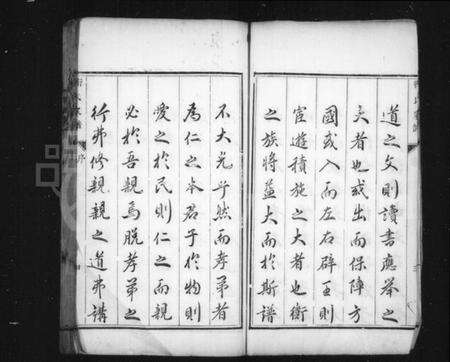 道之文則讀書應舉之
大者也或出而保障方
國或入而左右辟王則
宦遊積施之大者也衡
之族將益大而於斯譜
不大光乎然而孝弟者
為仁之本君子於物則
愛之於民則仁之而親
必於吾親焉脫孝弟之
行弗修親親之道弗講